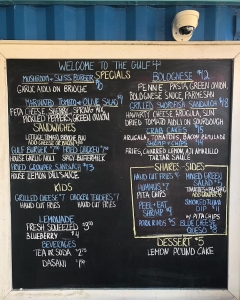 WELCOME TO THE GULF
SPECIALS
MUSHROOM + SWISS BURGER
GARLIC AIOLI ON BRIOCHE
MARINATED TOMATO + OLIVE SALAD
FETA CHEESE, SPRING MIX
PICKLED PEPPERS, GREEN ONION
SANDWICHES
LETTUCE, TOMATO, BRIOCHE BUN
ADD CHEESE OR BACON
GULF BURGER FRIED CHICKEN
HOUSE GARLIC AIOLI SPICY BUTTERMILK
FRIED GROUPER SANDWICH $13
HOUSE LEMON DILL SAUCE
KIDS
GRILLED CHEESE $7 CHICKEN TENDERS
HAND CUT FRIES HAND CUT FRIES
LEMONADE
FRESH SQUEEZED
BLUEBERRY $4
BEVERAGES
TEA OR SODA
DASANI
BOLOGNESE $12
PENNE PASTA, GREEN ONION,
BOLOGNESE SAUCE, PARMESAN
GRILLED SWORDFISH SANDWICH
HAVARTY CHEESE, ARUGULA, SUN
DRIED TOMATO AIOLI ON SOURDOUGH
CRAB CAKES $15
ARUGULA, TOMATOES, BACON
SHRIMP CHIPS
FRIES, CHARRED LEMON, AJI AMARILLO
TARTAR SAUCE
SHARES SIDES
HAND CUT FRIES
HUMMUS $7
PITA CHIPS
PEEL + EAT
SHRIMP
PORK RINDS $5
MIXED GREEN
SALAD
SMOKED TUNA
DIP $11
W/ PITA CHIPS
BLUE CHEESE
QUESO
DESSERT $5
LEMON POUND CAKE